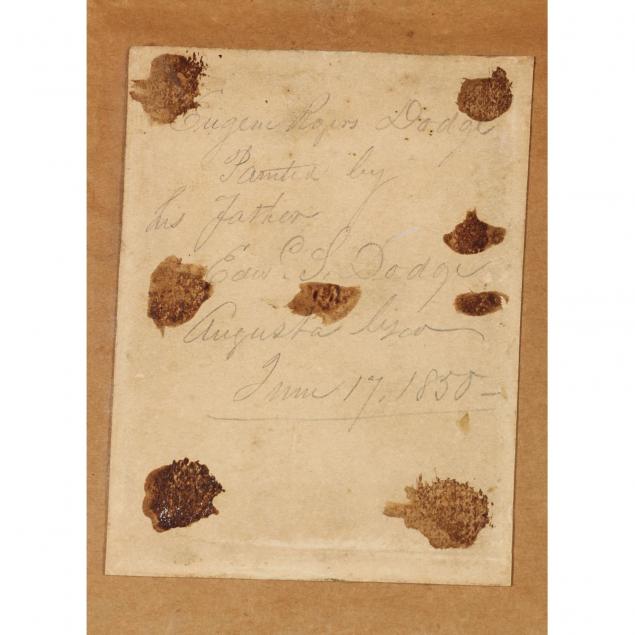 Eugene Rogers Dodge
Painted by
his Father
Edwd. S. Dodge
Augusta Geo
June 17, 1850